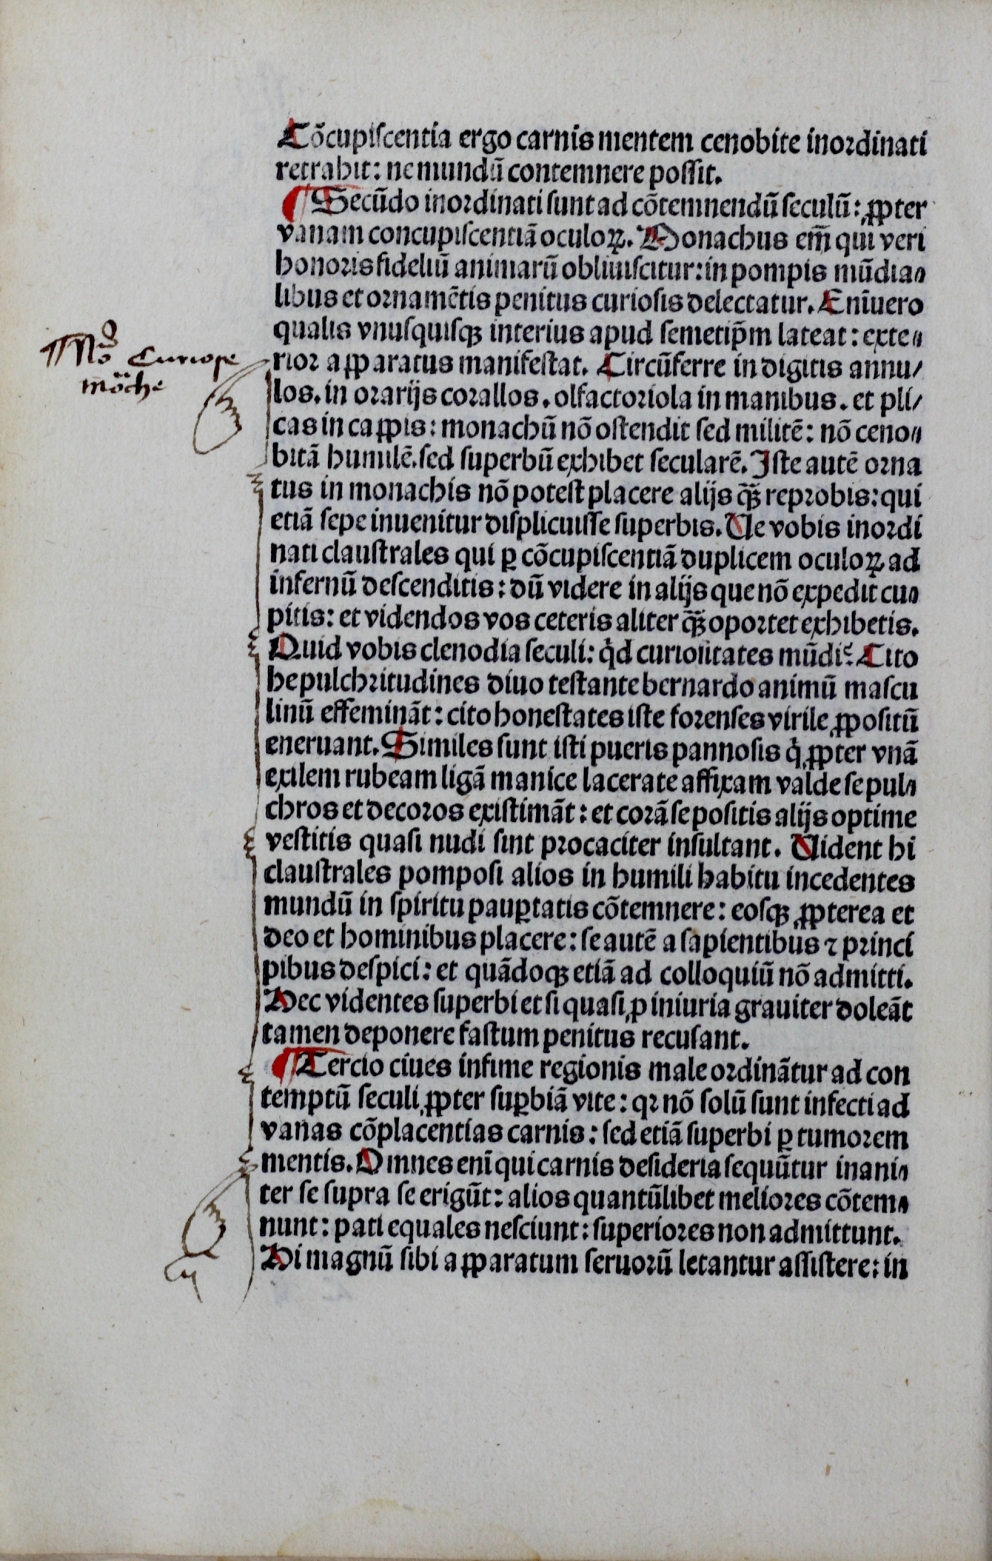 Cõcupiscentia ergo carnis mentem cenobite inordinati
retrahit: ne mundũ contemnere possit.
¶ Secũdo inordinati sunt ad cõtemnendũ seculũ: ꝓpter
vanam concupiscentiã oculoꝝ. Monachus em̃ qui veri
honoris fideliũ animarũ obliuiscitur: in pompis mũdia⸗
libus et ornamẽtis penitus curiosis delectatur. Enĩuero
qualis vnusquisqꝫ interius apud semetip̃m lateat: exte⸗
No Curiose
mo͂che
rior apꝑaratus manifestat. Circũferre in digitis annu/
los. in orarijs corallos. olfactoriola in manibus. et pli/
cas in cappis: monachũ nõ ostendit sed militẽ: nõ ceno⸗
bitã humilẽ. sed superbũ exhibet secularẽ. Iste autẽ orna
tus in monachis nõ potest placere alijs qꝫ̃ reprobis: qui
etiã sepe inuenitur displicuisse superbis. Ue vobis inordi
nati claustrales qui ꝑ cõcupiscentiã duplicem oculoꝝ ad
infernũ descenditis: dũ videre in alijs que nõ expedit cu⸗
pitis: et videndos vos ceteris aliter qꝫ̃ oportet exhibetis.
Quid vobis clenodia seculi: qͥd curiositates mũdi? Cito
he pulchritudines diuo testante bernardo animũ mascu
linũ effeminãt: cito honestates iste forenses virile ꝓpositũ
eneruant. Similes sunt isti pueris pannosis qͥ ꝓpter vnã
exilem rubeam ligã manice lacerate affixam valde se pul⸗
chros et decoros existimãt: et corã se positis alijs optime
vestitis quasi nudi sint procaciter insultant. Uident hi
claustrales pomposi alios in humili habitu incedentes
mundũ in spiritu pauꝑtatis cõtemnere: eosqꝫ ꝓpterea et
deo et hominibus placere: se autẽ a sapientibus ⁊ princi
pibus despici: et quãdoqꝫ etiã ad colloquiũ nõ admitti.
Hec videntes superbi et si quasi ꝓ iniuria grauiter doleãt
tamen deponere fastum penitus recusant.
¶ Tercio ciues infime regionis male ordinãtur ad con
temptũ seculi ꝓpter suꝑbiã vite: qꝛ nõ solũ sunt infecti ad
vanas cõplacentias carnis: sed etiã superbi ꝑ tumorem
mentis. Omnes enĩ qui carnis desideria sequũtur inani⸗
ter se supra se erigũt: alios quantũlibet meliores cõtem⸗
nunt: pati equales nesciunt: superiores non admittunt.
Hi magnũ sibi apparatum seruorũ letantur assistere: in